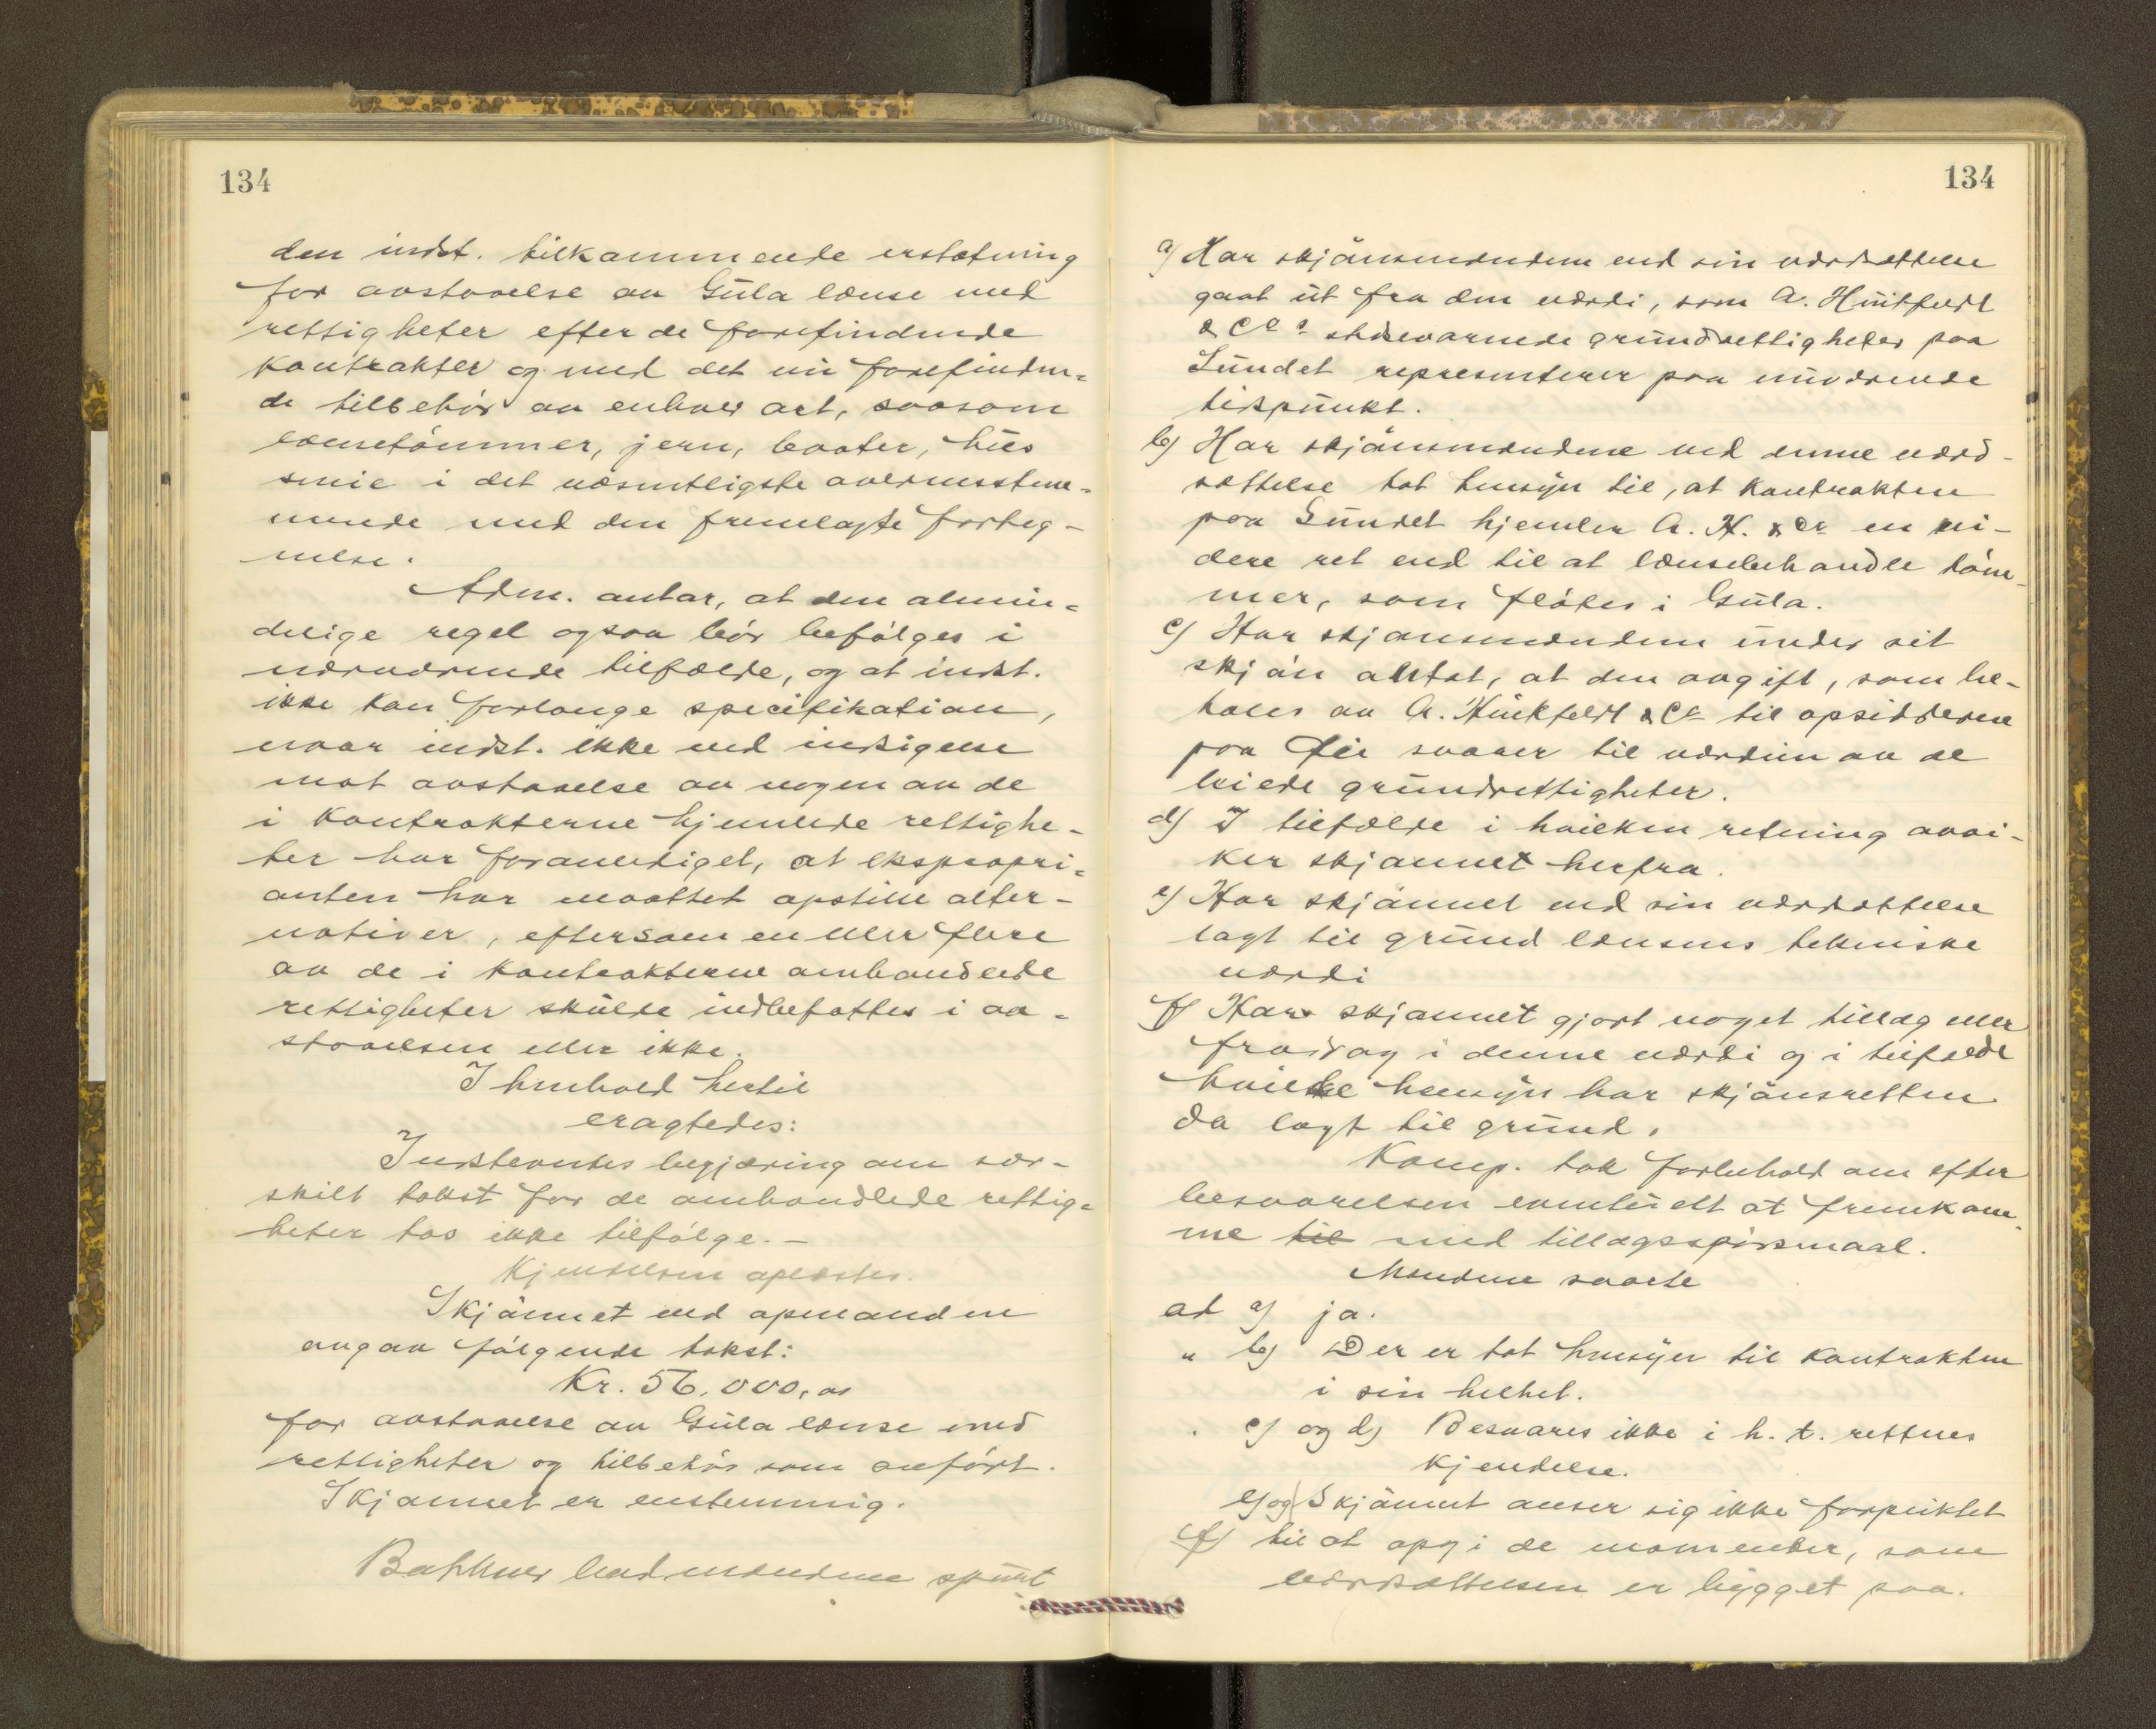 134
den indst. tilkommende erstatning
for avstaaelse av Gula lænse med
rettigheter efter de forefindende
kontrakter og med det nu forefinden-
de tilbehør av enhver art, saasom
lænsetømmer, jern, baater, hus
smie i det væsentligste overensstem-
mende med den fremlagte forteg-
nelse.
Adm. antar, at den almin-
delige regel ogsaa bør befølges i
nærværende tilfælde, og at indst.
ikke kan forlange specifikation,
naar indst. ikke ved indsigelse
mot avstaaelse av nogen av de
i kontrakterne hjemlede rettighe-
ter har foranlediget, at ekspropri-
anten har maattet opstille alter-
nativer, eftersom en eller flere
av de i kontrakterne omhandlede
rettigheter skulde indbefattes i av-
staaelsen eller ikke.
I henhold hertil
eragtedes:
Indstevntes begjæring om sær-
skilt takst for de omhandlede rettig-
heter tas ikke tilfølge. –
Kjendelsen oplæstes.
Skjønnet ved opmanden
avgav følgende takst:
Kr. 56.000,00
for avstaaelse av Gula lænse med
rettigheter og tilbehør som anført.
Skjønnet er enstemmig.
bad mændene spurt
134
a) Har skjønsmændene ved sin værdsættelse
gaat ut fra den værdi, som A. Huitfeldt
& Co s stedsevarende grundrettigheter paa
Sundet representerer paa nuværende
tidspunkt.
b) Har skjønsmændene ved denne værd-
sættelse tat hensyn til, at kontrakten
paa Sundet hjemler A. H. & Co en vi-
dere ret end til at lænsebehandle tøm-
mer, som fløtes i Gula.
c) Har skjønsmændene under sit
skjøn antat, at den avgift, som be-
tales av A. Huitfeldt & Co til opsidderne
paa Øie svarer til værdien av de
leiede grundrettigheter.
d) I tilfælde i hvilken retning avvi-
ker skjønnet herfra.
e) Har skjønnet ved sin værdsættelse
lagt til grund lænsens tekniske
værdi
f) Har skjønnet gjort noget tillæg eller
fradrag i denne værdi og i tilfælde
hvilke hensyn har skjønsretten
da lagt til grund.
Komp. tok forbehold om efter
besvarelsen eventuelt at fremkom-
me til med tillægsspørsmaal.
Mændene svarte
ad a) ja.
" b) Der er tat hensyn til kontrakten
i sin helhet.
" c) og d) Besvares ikke i h. t. rettens
kjendelse.
e) og Skjønnet anser sig ikke forpliktet
f) til at opgi de momenter, som
værdsættelsen er bygget paa.